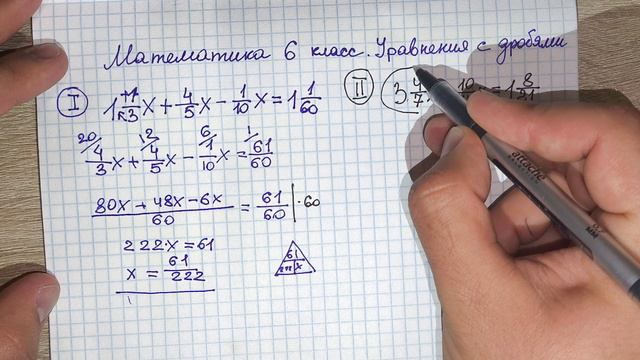 Математика 6 класс. Уравнения с дробями
I 1 +1/·3 x + 4/5 x − 1/10 x = 1 1/60
II 3 4/7 = 1 8/21
20 12 6 1
4/3 x + 4/5 x − 1/10 x = 61/60
80x + 48x − 6x / 60 = 61/60 | · 60
222x = 61
x = 61/222
61
222 x
attache
MM